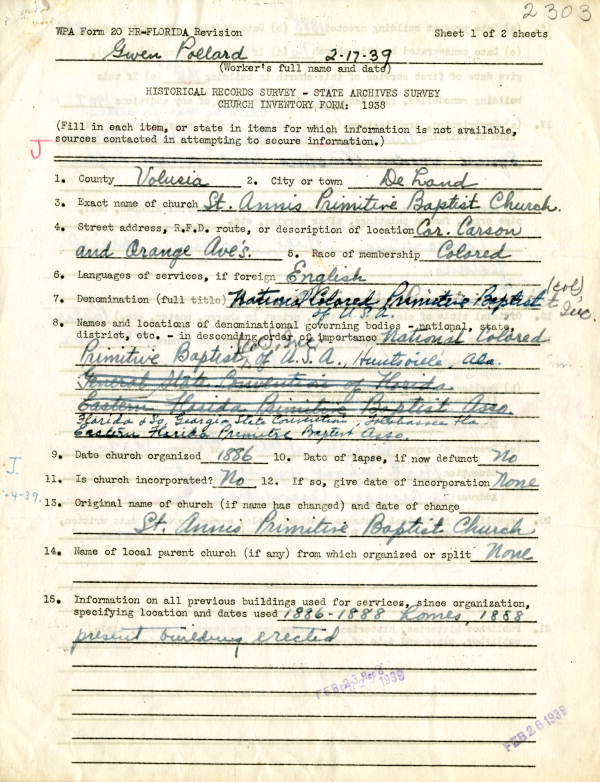 2303
WPA Form 20 HR-FLORIDA Revision Sheet 1 of 2 sheets
Gwen Pollard 2-17-39
(Worker's full name and date)
HISTORICAL RECORDS SURVEY - STATE ARCHIVES SURVEY
CHURCH INVENTORY FORM: 1938
(Fill in each item, or state in items for which information is not available,
sources contacted in attempting to secure information.)
J
1. County Volusia 2. City or town De Land
3. Exact name of church St. Annis Primitive Baptist Church.
4. Street address, R.F.D. route, or description of location Cor. Carson
and Orange Ave's. 5. Race of membership Colored
6. Languages of services, if foreign English
7. Denomination (full title) National Colored Primitive Baptist (col)
of U.S.A.
8. Names and locations of denominational governing bodies - national, state,
district, etc. - in descending order of importance National Colored
Primitive Baptist of U.S.A., Huntsville, Ala.
General State Convention of Florida
Eastern Florida Primitive Baptist Asso.
Florida & So. Georgia State Convention, Tallahassee Fla.
Eastern Florida Primitive Baptist Asso.
9. Date church organized 1886 10. Date of lapse, if now defunct No
J
11. Is church incorporated? No 12. If so, give date of incorporation None
-4-39.
13. Original name of church (if name has changed) and date of change
St. Annis Primitive Baptist Church
14. Name of local parent church (if any) from which organized or split None
15. Information on all previous buildings used for services, since organization,
specifying location and dates used 1886-1888 homes, 1888
present building erected
FEB 28 1939